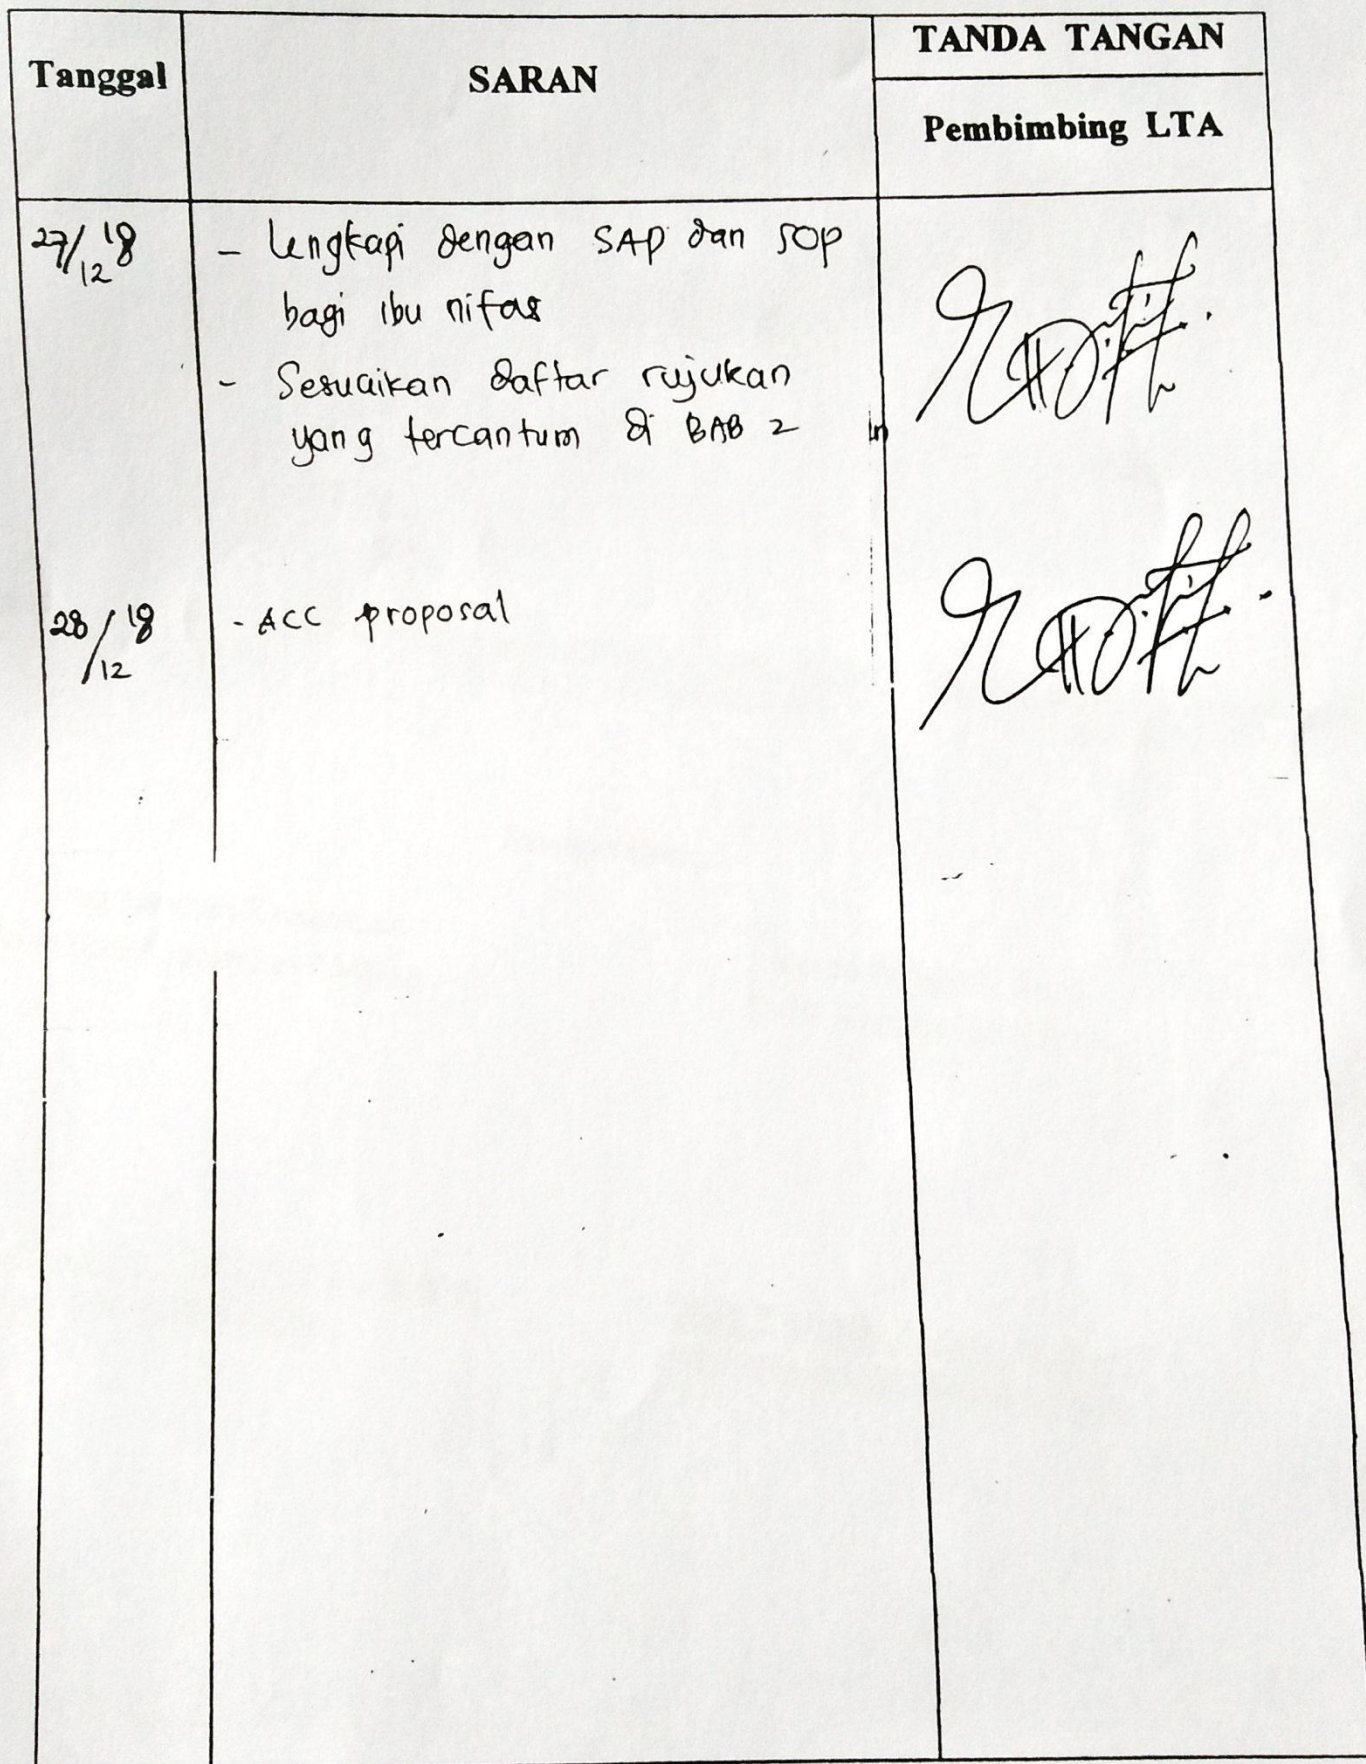 Tanggal
SARAN
TANDA TANGAN
Pembimbing LTA
27/12 18
- Lengkapi dengan SAP dan SOP
bagi ibu nifas
- Sesuaikan daftar rujukan
yang tercantum di BAB 2
28/12 18
- ACC proposal